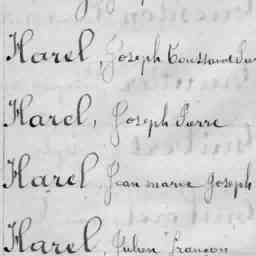 Harel, Joseph Toussaint
Harel, Joseph Pierre
Harel, Jean marie Joseph
Harel, Julien François